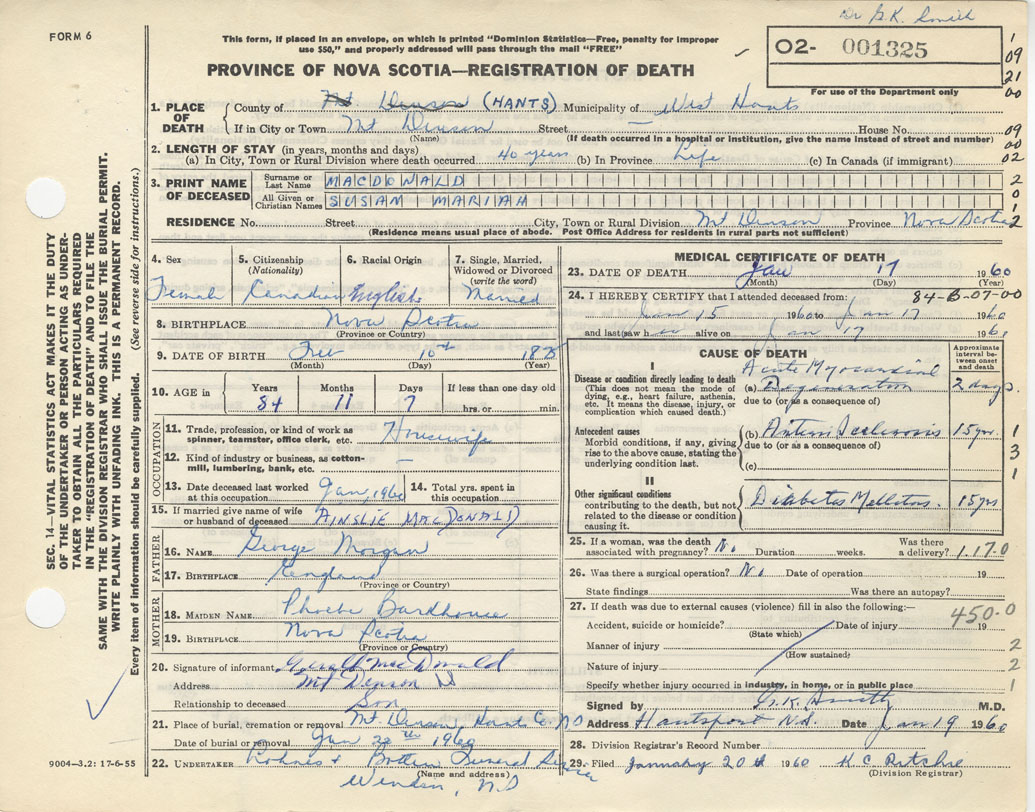 Dr G.K. Smith
FORM 6
This form, if placed in an envelope, on which is printed "Dominion Statistics—Free, penalty for improper
use $50," and properly addressed will pass through the mail "FREE"
O2- 001325
1
09
21
00
PROVINCE OF NOVA SCOTIA—REGISTRATION OF DEATH
For use of the Department only
1. PLACE OF DEATH
County of Mt Denson (HANTS) Municipality of West Hants
If in City or Town Mt Denson Street — House No. 09
(Name) (If death occurred in a hospital or institution, give the name instead of street and number) 00
2. LENGTH OF STAY (in years, months and days)
(a) In City, Town or Rural Division where death occurred 40 years (b) In Province Life (c) In Canada (if immigrant) 02
3. PRINT NAME OF DECEASED
Surname or Last Name MACDONALD 2
All Given or Christian Names SUSAN MARIAH 0
1
RESIDENCE No. Street City, Town or Rural Division Mt Denson Province Nova Scotia 2
(Residence means usual place of abode. Post Office Address for residents in rural parts not sufficient)
4. Sex
Female
5. Citizenship
(Nationality)
Canadian
6. Racial Origin
English
7. Single, Married,
Widowed or Divorced
(write the word)
Married
8. BIRTHPLACE Nova Scotia
(Province or Country)
9. DATE OF BIRTH 10th
(Month) (Day) (Year)
10. AGE in
Years Months Days If less than one day old
84 11 7 hrs. or min.
OCCUPATION
11. Trade, profession, or kind of work as
spinner, teamster, office clerk, etc. Housewife
12. Kind of industry or business, as cotton-
mill, lumbering, bank, etc. —
13. Date deceased last worked
at this occupation Jan, 1960
14. Total yrs. spent in
this occupation
15. If married give name of wife
or husband of deceased AINSLIE MACDONALD
FATHER
16. NAME George Morgan
17. BIRTHPLACE England
(Province or Country)
MOTHER
18. MAIDEN NAME Phoebe Barkhouse
19. BIRTHPLACE Nova Scotia
(Province or Country)
20. Signature of informant Gerald MacDonald
Address Mt Denson N S
Relationship to deceased Son
21. Place of burial, cremation or removal Mt. Denson Hants Co. NS
Date of burial or removal Jan 20th 1960
22. UNDERTAKER Funeral Service
(Name and address)
Windsor, N S
MEDICAL CERTIFICATE OF DEATH
23. DATE OF DEATH Jan 17 1960
(Month) (Day) (Year)
24. I HEREBY CERTIFY that I attended deceased from: 84-B-07-00
Jan 15 1960 to Jan 17 1960
and last saw h alive on Jan 17 196
CAUSE OF DEATH
Approximate
interval be-
tween onset
and death
I
Disease or condition directly leading to death
(This does not mean the mode of
dying, e.g., heart failure, asthenia,
etc. It means the disease, injury, or
complication which caused death.)
Acute Myocardial
(a) Degeneration 2 days.
due to (or as a consequence of)
Antecedent causes
Morbid conditions, if any, giving
rise to the above cause, stating the
underlying condition last.
(b) Arterio Sclerosis 15 yrs. 1
due to (or as a consequence of) 3
(c) 1
II
Other significant conditions
contributing to the death, but not
related to the disease or condition
causing it.
Diabetes Mellitus. 15 yrs
25. If a woman, was the death
associated with pregnancy? No Duration weeks. Was there
a delivery? 1.17.0
26. Was there a surgical operation? No Date of operation 19
State findings Was there an autopsy?
27. If death was due to external causes (violence) fill in also the following:—
450.0
Accident, suicide or homicide? Date of injury 19
(State which)
Manner of injury 2
(How sustained)
Nature of injury 2
Specify whether injury occurred in industry, in home, or in public place 1
Signed by G.K. Smith M.D.
Address Hantsport N.S. Date Jan 19 1960
28. Division Registrar's Record Number
29. Filed January 20th 1960 K C Ritchie
(Division Registrar)
SEC. 14—VITAL STATISTICS ACT MAKES IT THE DUTY
OF THE UNDERTAKER OR PERSON ACTING AS UNDER-
TAKER TO OBTAIN ALL THE PARTICULARS REQUIRED
IN THE "REGISTRATION OF DEATH" AND TO FILE THE
SAME WITH THE DIVISION REGISTRAR WHO SHALL ISSUE THE BURIAL PERMIT.
WRITE PLAINLY WITH UNFADING INK. THIS IS A PERMANENT RECORD.
Every item of information should be carefully supplied. (See reverse side for instructions.)
9004—3.2: 17-6-55